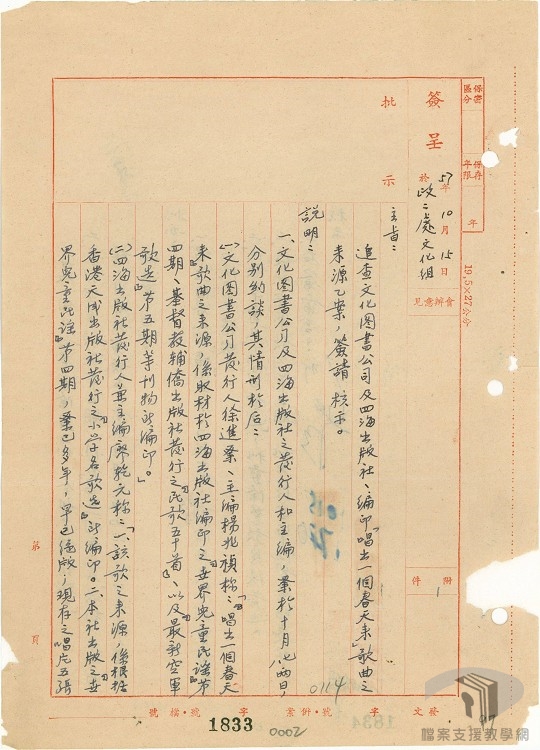 保密區分
保存年限
年
簽呈
57年10月15日
於政二處文化組
會辦意見
附件
1
19.5×27公分
批示
主旨：
追查文化图書公司及四海出版社、編印『唱出一個春天來』歌曲之
来源乙案，簽請 核示。
說明：
一、文化图書公司及四海出版社之發行人和主編，業於十月八、兩日，
分別約談，其情形於后：
(一)文化图書公司發行人徐進業、主編楊兆禎称：『唱出一個春天
来』歌曲之来源，係取材於四海出版社編印之『世界兒童民謠』第
四期、基督教輔僑出版社發行之『民歌五十首』、以及『最新空軍
歌选』第五期等刊物所編印。」
(二)四海出版社發行人兼主編廖乾元称：「一、該歌之来源，係根據
香港大成出版社發行之『小学名歌选』所編印。二、本社出版之『世
界兒童民謠』第四期，業已多年，早已絕版，現存之唱片五張
第 頁
發文 字 號
案件 字 號
檔號
0114
1833
0002
1834
97
檔案支援教學網